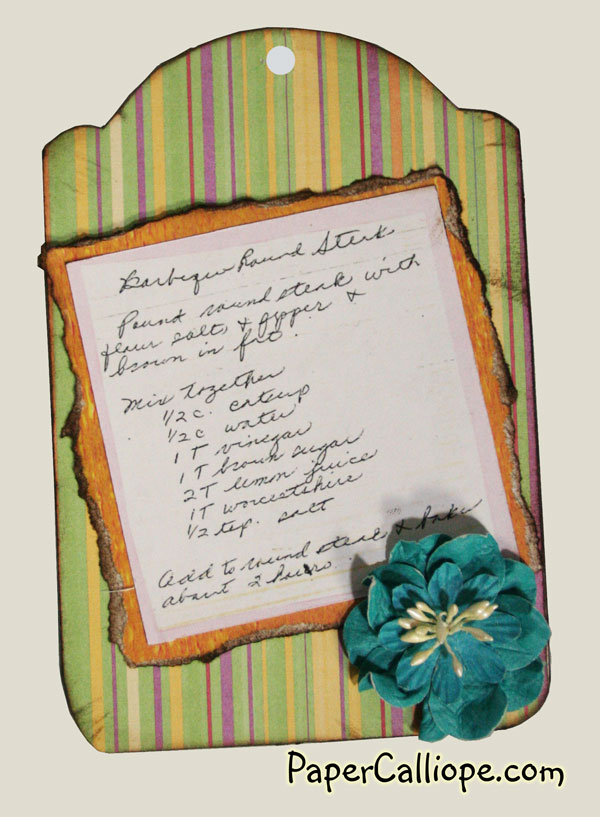 Barbeque Round Steak
Pound round steak with
flour salt & pepper &
brown in fat.
Mix together
1/2 c. catsup
1/2 c water
1 T vinegar
1 T brown sugar
2 T lemon juice
1 T worcestshire
1/2 tsp. salt
Add to round steak & bake
about 2 hours.
PaperCalliope.com